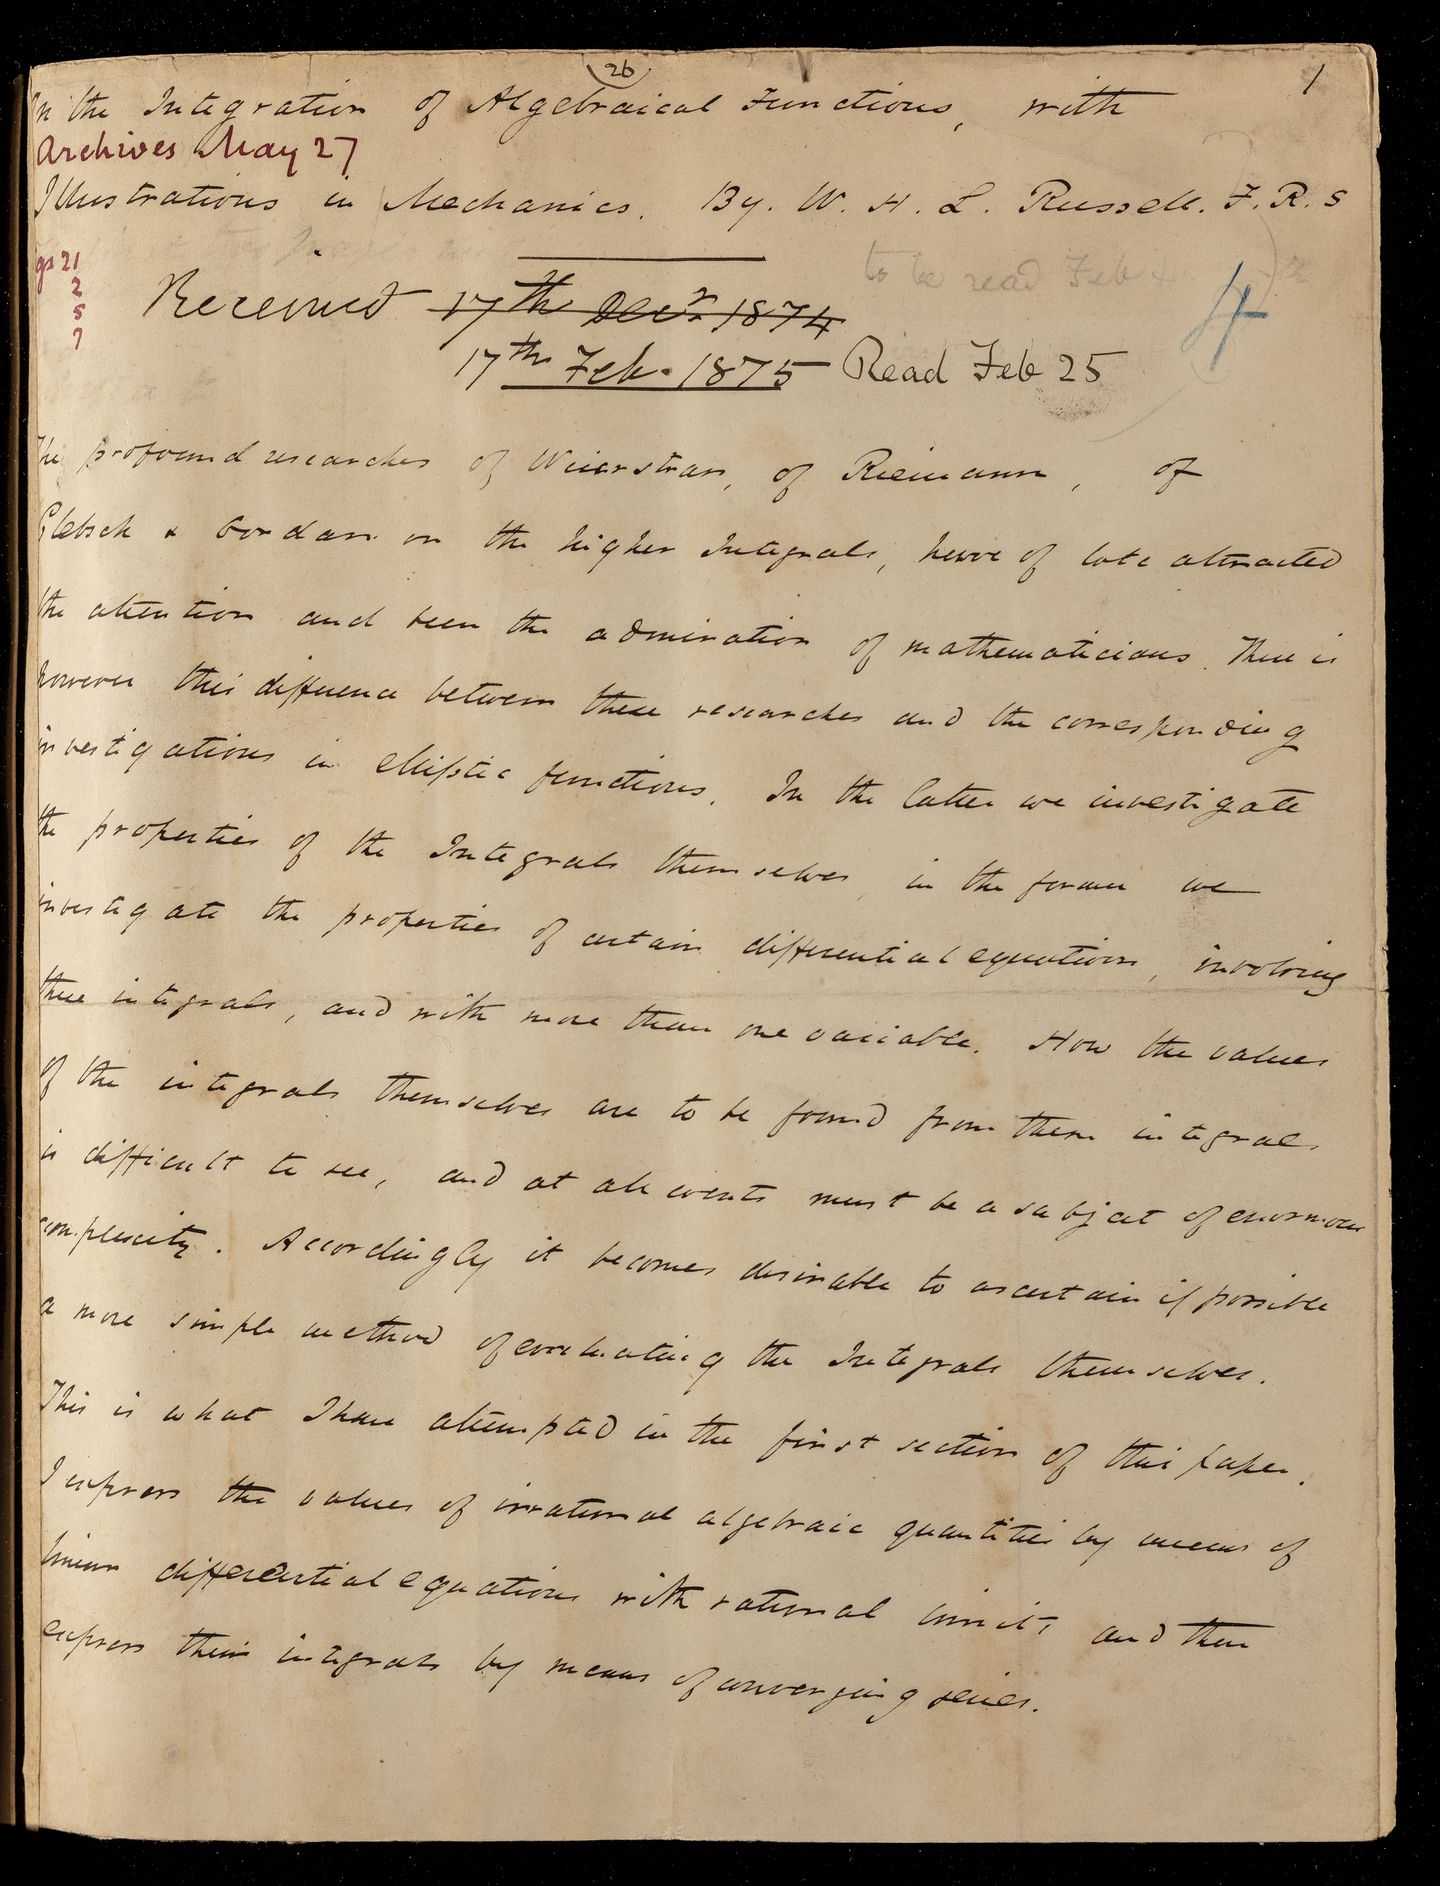 26
1
On the Integration of Algebraical Functions, with
Archives May 27
Illustrations in Mechanics. By. W. H. L. Russell. F. R. S
to be read Feb 4
gs 21
2
5
7
4
Received 17th Decr. 1874
17th Feb. 1875 Read Feb 25
The profound researches of Weierstrass, of Riemann, of
Clebsch & Gordan on the higher Integrals, have of late attracted
the attention and been the admiration of mathematicians. There is
however this difference between these researches and the corresponding
investigations in elliptic functions. In the latter we investigate
the properties of the Integrals themselves, in the former we
investigate the properties of certain differential equations, involving
these integrals, and with more than one variable. How the values
of the integrals themselves are to be found from these integrals
is difficult to see, and at all events must be a subject of enormous
complexity. Accordingly it becomes desirable to ascertain if possible
a more simple method of evaluating the Integrals themselves.
This is what I have attempted in the first section of this paper.
I express the values of irrational algebraic quantities by means of
linear differential equations with rational limits and then
express their integrals by means of converging series.